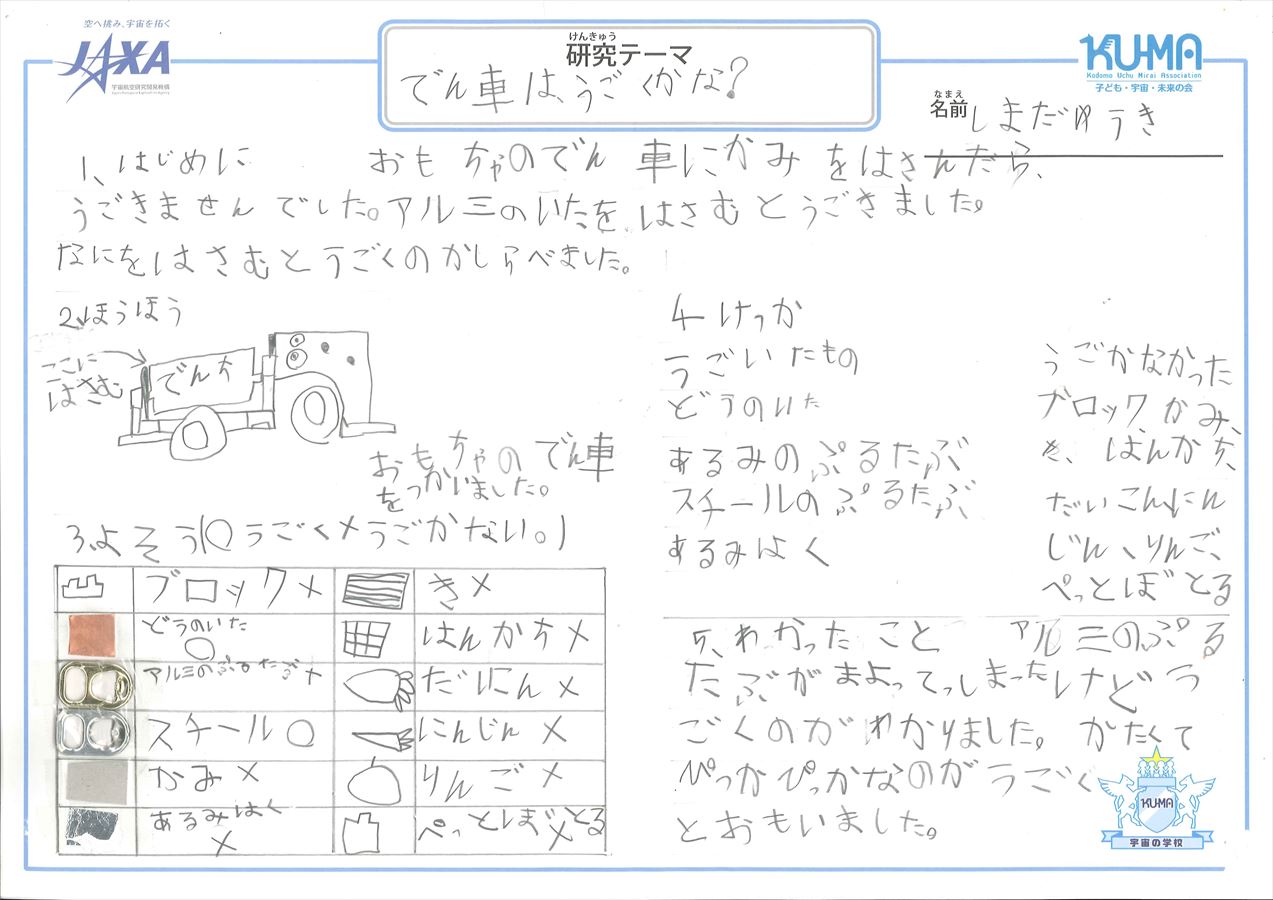 空へ挑み、宇宙を拓く
JAXA
宇宙航空研究開発機構
けんきゅう
研究テーマ
でん車は、うごくかな?
KU-MA
Kodomo Uchu Mirai Association
子ども・宇宙・未来の会
なまえ
名前 しまだゆうき
1、はじめに おもちゃのでん車にかみをはさんだら、
うごきませんでした。アルミのいたを、はさむとうごきました。
なにをはさむとうごくのかしらべました。
2、ほうほう
ここに
はさむ
でんち
おもちゃのでん車
をつかいました。
3、よそう(○うごく×うごかない。)
ブロック× き×
どうのいた○ はんかち×
アルミのぷるたぶ× だいにん×
スチール○ にんじん×
かみ× りんご×
あるみはく× ぺっとぼとる×
4 けっか
うごいたもの
どうのいた
あるみのぷるたぶ
スチールのぷるたぶ
あるみはく
うごかなかった
ブロック、かみ、
き、はんかち、
だいこんにん
じん、りんご、
ぺっとぼとる
5、わかったこと アルミのぷる
たぶがまよってしまったけどう
ごくのがわかりました。かたくて
ぴっかぴっかなのがうごく
とおもいました。
KUMA
宇宙の学校